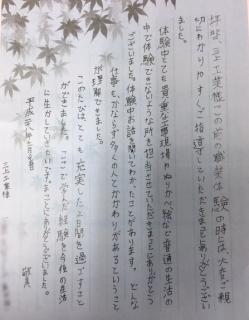 拝啓 三上工業様この前の職業体験の時には、大変ご親
切にわかりやすくご指導していただきまことにありがとうござい
ました。
体験中とても貴重な工場現場
中で体験できないような所を担当させていただきまことにありがとう
ございました。体験中お話を聞いてわかったことがあります。どんな
仕事もかならず多くの人とかかわりがあるということ
が理解できました。
このたびはとても充実した2日間を過ごすこと
ができました。ここで学んだ経験を今後の生活
に生かしていきたいです。まことにありがとうございました。
敬具
平成二八年
三上工業様